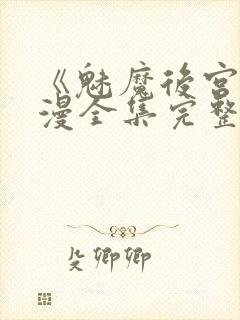 《魅魔後宮
漫全集完整
殳卿卿